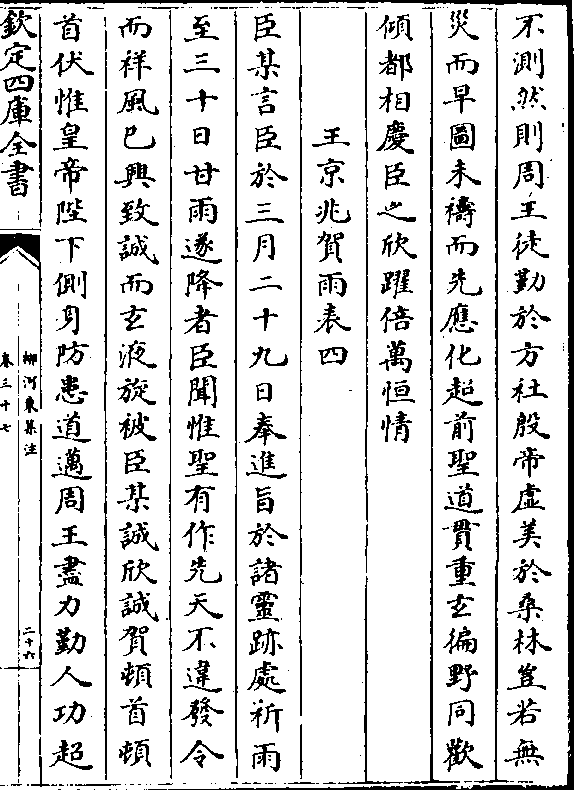 不測然則周王徒勤於方社殷帝虛美於桑林豈若無
災而早圖未禱而先應化超前聖道貫重玄徧野同歡
傾都相慶臣之欣躍倍萬恒情
王京兆賀雨表四
臣某言臣於三月二十九日奉進旨於諸靈跡處祈雨
至三十日甘雨遂降者臣聞惟聖有作先天不違發令
而祥風已興致誠而玄液旋被臣某誠欣誠賀頓首頓
首伏惟皇帝陛下側身防患道邁周王盡力勤人功超
欽定四庫全書
柳河東集注
卷三十七
二十六